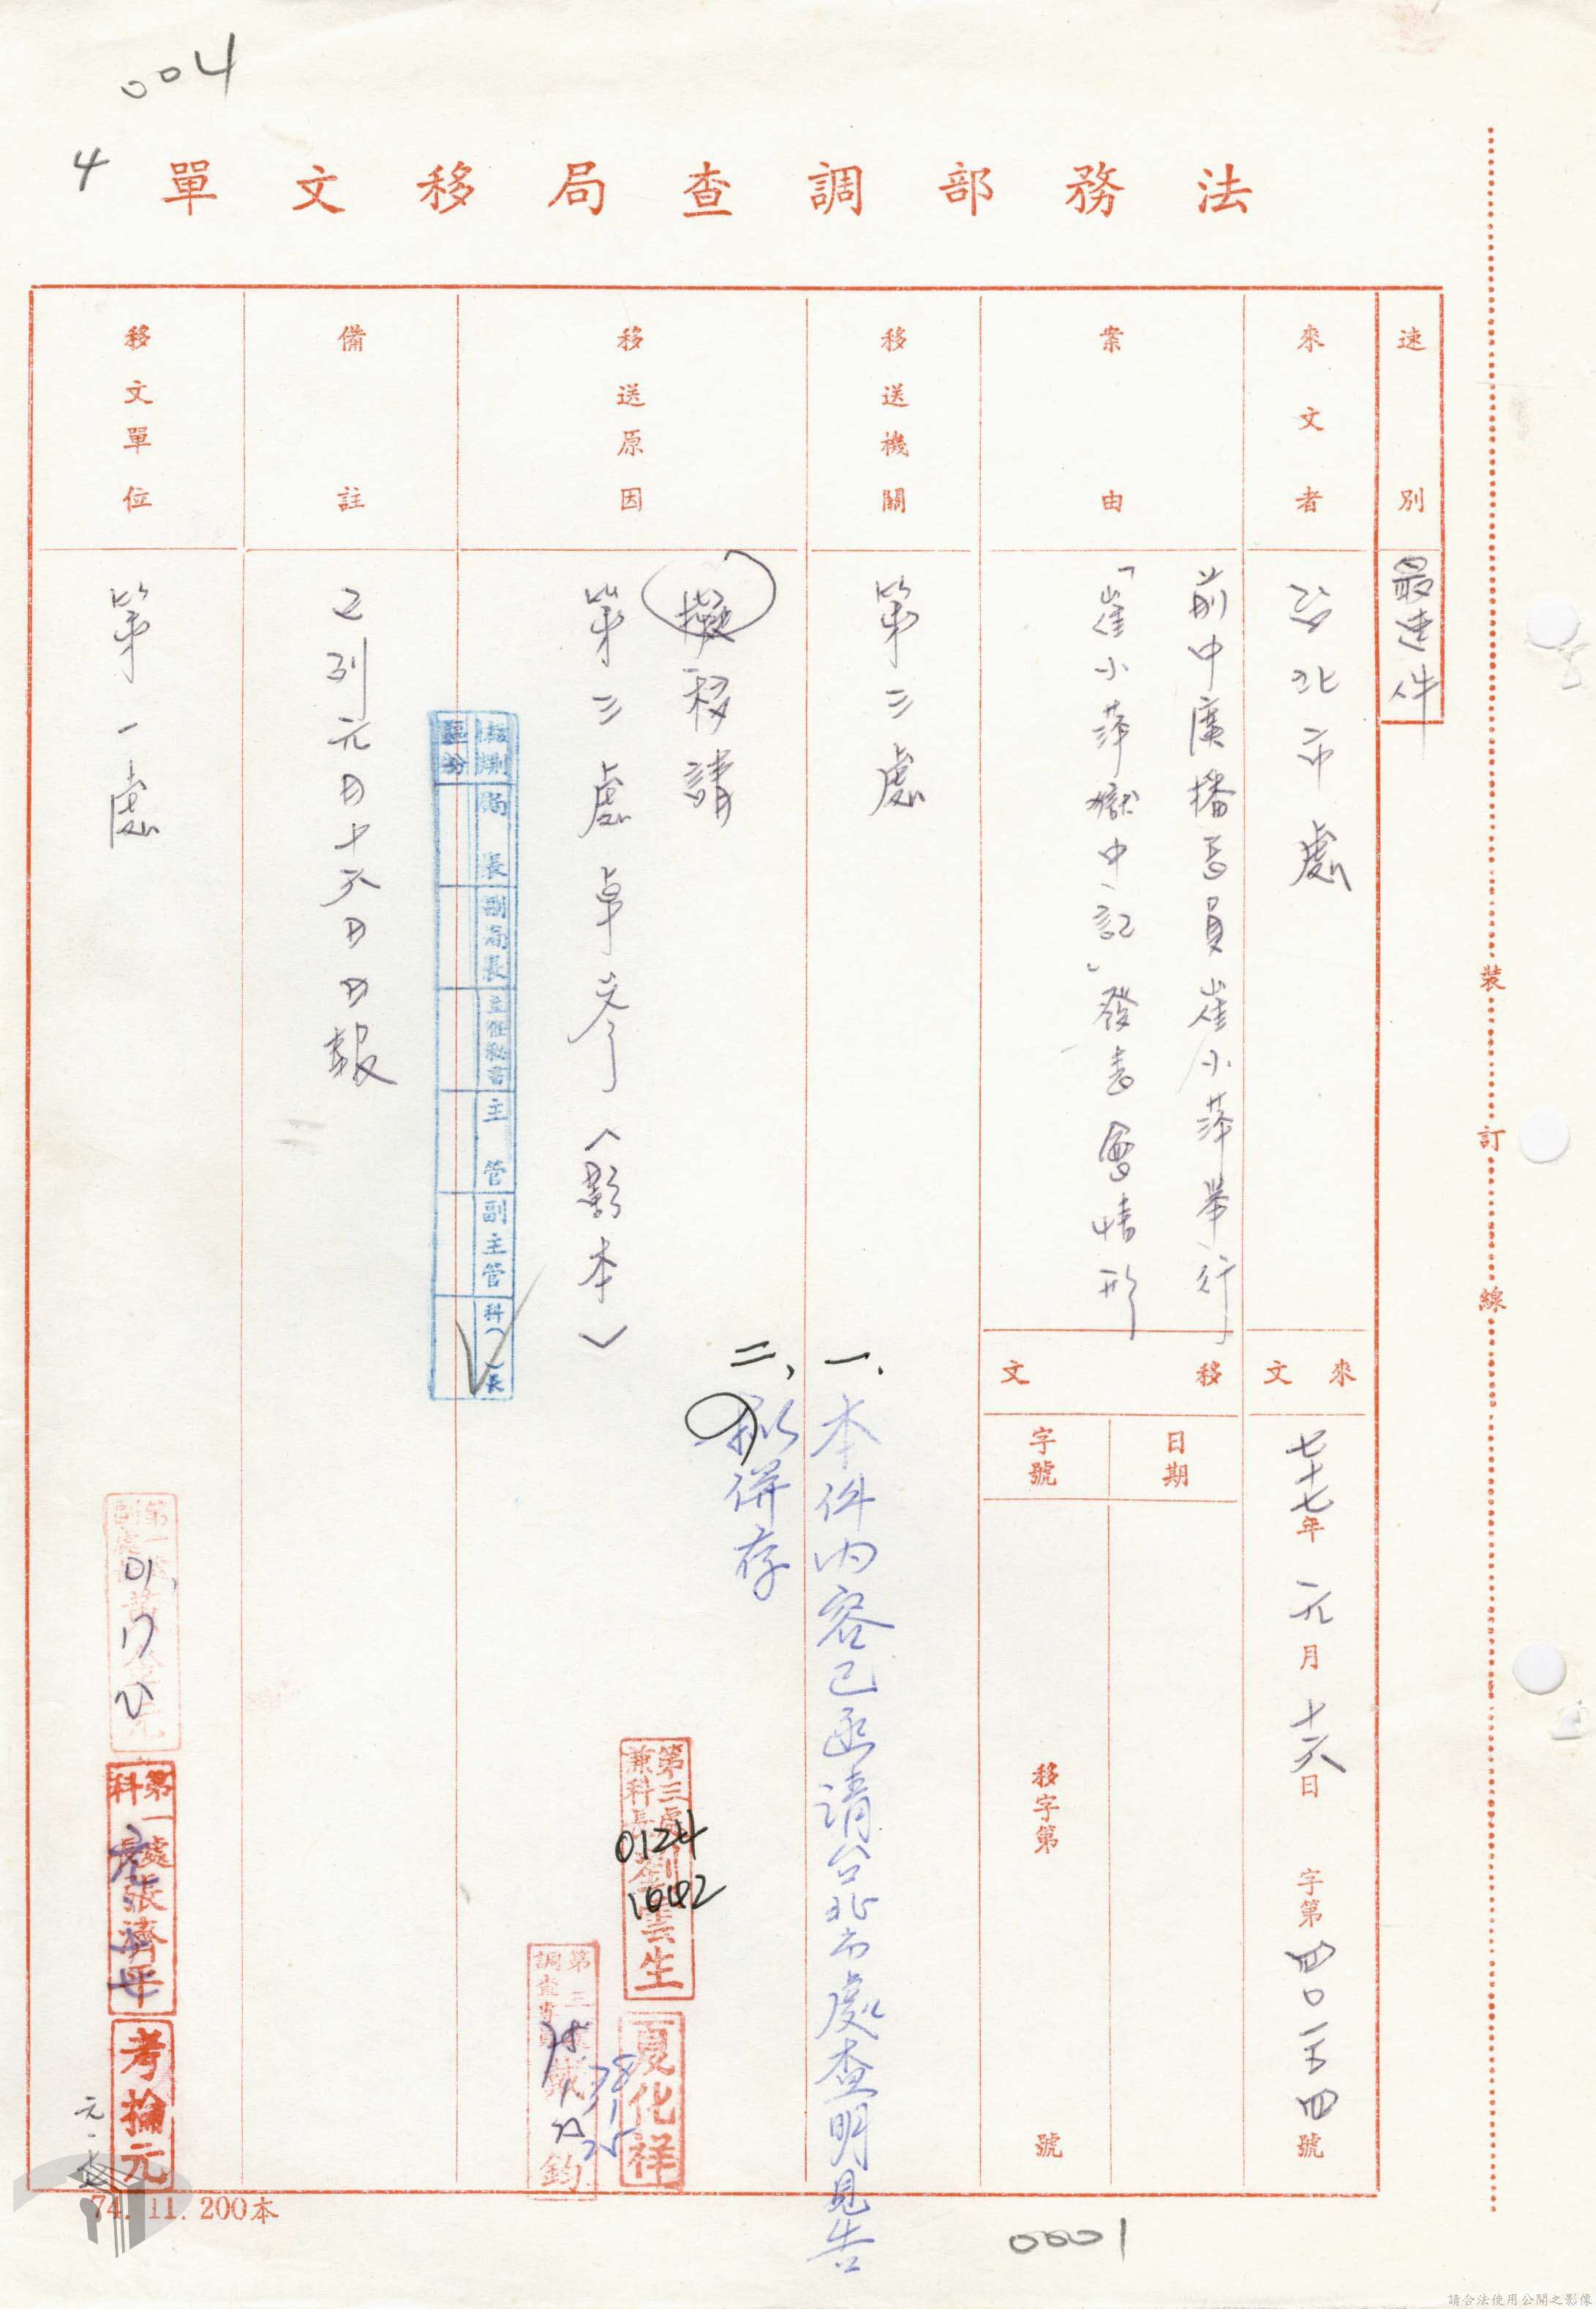 004
4
法務部調查局移文單
速別
最速件
來文者
台北市處
來文
七十七年元月十六日
字第四〇一五四號
案由
前中廣播音員崔小萍舉行
「崔小萍獄中記」發表會情形
移文
日期
字號
移字第 號
移送機關
第三處
一、本件內容已函請台北市處查明見告
二、擬併存
移送原因
擬移請
第三處卓參（影本）
第三處
兼科長劉雲生
0124
1642
夏化祥
78 1 25
第三處
鈞
核判區分
局長
副局長
主任秘書
主管
副主管
科()長
備註
已列元月十六日日報
移文單位
第一處
第一處
副處長
科長張濟平
考掄元
元.
74.11.200本
裝訂線
0001
請合法使用公開之影像